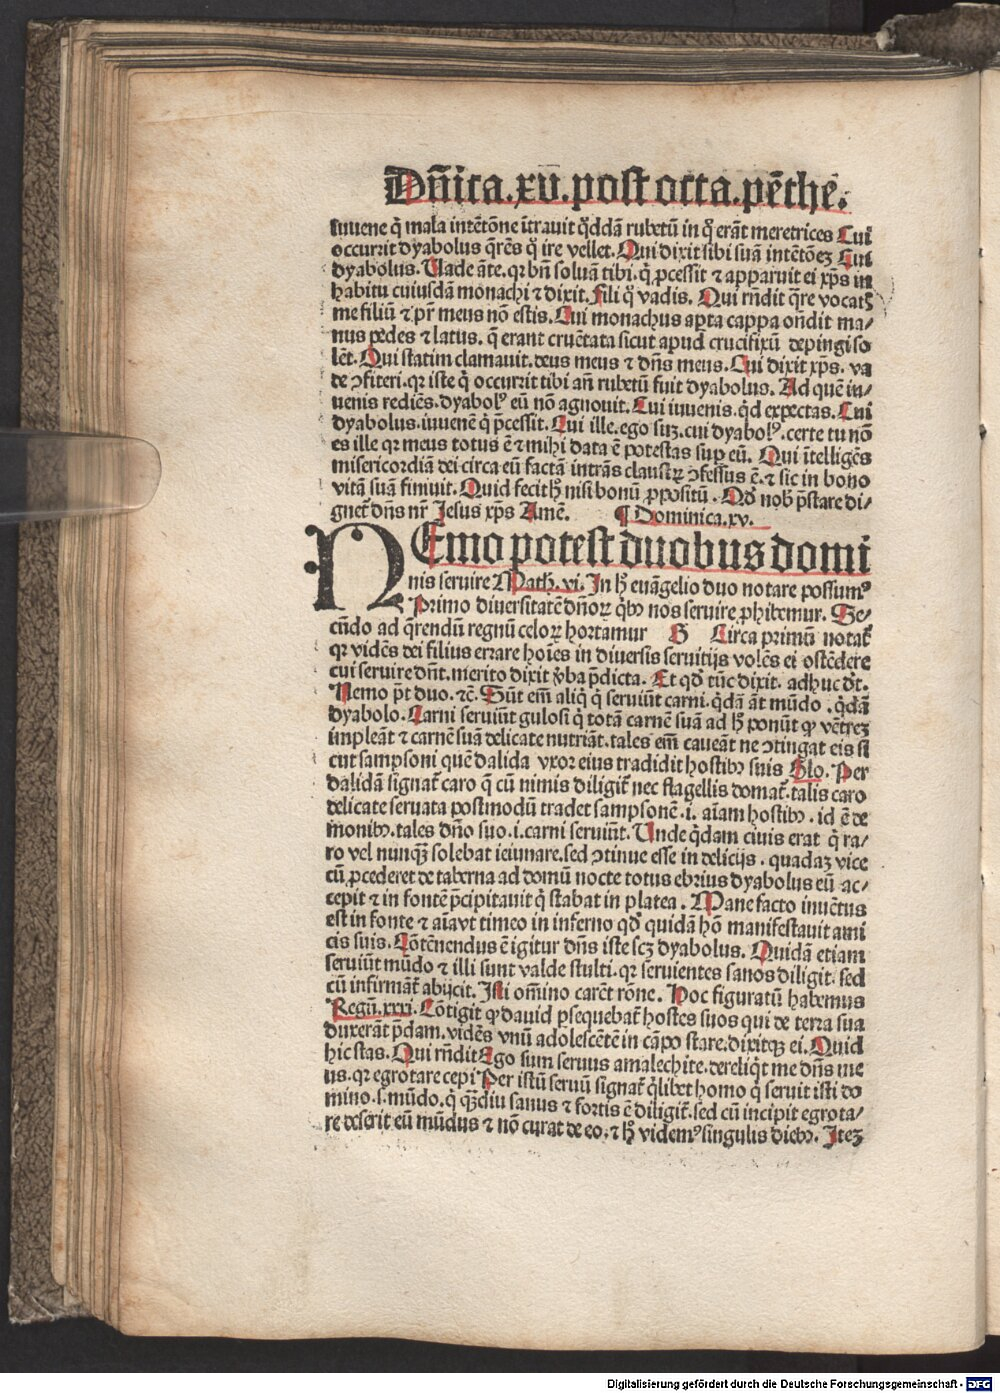 Dñica.xv.post octa.pẽthe.
iuuene q̃ mala intẽtõne ĩtrauit q̃ddã rubetũ in q̃ erãt meretrices Cui
occurrit dyabolus q̃rẽs q̃ ire vellet. Qui dixit sibi suã intẽtõeʒ Cui
dyabolus. Vade ãte. qꝛ bñ soluã tibi. q̃ ꝓcessit ⁊ apparuit ei xp̃s in
habitu cuiusdã monachi ⁊ dixit. fili q̃ vadis. Qui rñdit q̃re vocatꝭ
me filiũ ⁊ pr̃ meus nõ estis. Cui monachus apta cappa oñdit ma/
nus pedes ⁊ latus. q̃ erant cruẽtata sicut apud crucifixũ depingi so
lẽt. Qui statim clamauit. deus meus ⁊ dñs meus. Cui dixit xp̃s. va
de ↄfiteri. qꝛ iste q̃ occurrit tibi añ rubetũ fuit dyabolus. Ad quẽ in/
uenis rediẽs. dyabolꝰ eũ nõ agnouit. Cui iuuenis. q̃d expectas. Cui
dyabolus. iuuenẽ q̃ p̃cessit. Cui ille. ego suʒ. cui dyabolꝰ. certe tu nõ
es ille qꝛ meus totus ẽ ⁊ mihi data ẽ potestas sup eũ. Qui ĩtelligẽs
misericordiã dei circa eũ factã intrãs claustꝝ ↄfessus ẽ. ⁊ sic in bono
vitã suã finiuit. Quid fecit hͦ nisi bonũ ꝓpositũ. Qd̃ nob̃ p̃stare di/
gnet̃ dñs nr̃ Jesus xp̃s Amẽ. ¶ Dominica.xv.
NEmo potest duobus domi
nis seruire Math̃. vi. In hͦ euãgelio duo notare possumꝰ
Primo diuersitatẽ dñoꝝ q̃bꝫ nos seruire ꝓhibemur. Se/
cũdo ad q̃rendũ regnũ celoꝝ hortamur B Circa primũ notat̃
qꝛ vidẽs dei filius errare hoĩes in diuersis seruitijs volẽs ei ostẽdere
cui seruire dñt. merito dixit ṽba p̃dicta. Et qd̃ tũc dixit. adhuc dt̃.
Nemo p̃t duo. ⁊c̃. Sũt em̃ aliq̃ q̃ seruiũt carni. q̃dã ãt mũdo. q̃dã
dyabolo. Carni seruiũt gulosi q̃ totã carnẽ suã ad hͦ ponũt ꝙ vẽtreʒ
impleãt ⁊ carnẽ suã delicate nutriãt. tales em̃ caueãt ne ↄtingat eis si
cut sampsoni quẽ dalida vxor eius tradidit hostibꝫ suis Glo. Per
dalidã signat̃ caro q̃ cũ nimis diligit̃ nec flagellis domat̃. talis caro
delicate seruata postmodũ tradet sampsonẽ .i. aĩam hostibꝫ. id ẽ de
monibꝫ. tales dño suo .i. carni seruiũt. Unde q̃dam ciuis erat q̃ ra/
ro vel nunq̃ʒ solebat ieiunare. sed ↄtinue esse in delicijs. quadaʒ vice
cũ ꝓcederet de taberna ad domũ nocte totus ebrius dyabolus eũ ac/
cepit ⁊ in fontẽ p̃cipitauit q̃ stabat in platea. Mane facto inuẽtus
est in fonte ⁊ aĩa vt timeo in inferno qd̃ quidã hõ manifestauit ami
cis suis. Cõtẽnendus ẽ igitur dñs iste scʒ dyabolus. Quidã etiam
seruiũt mũdo ⁊ illi sunt valde stulti. qꝛ seruientes sanos diligit. sed
cũ infirmãt̃ abijcit. Isti om̃ino carẽt rõne. Hoc figuratũ habemus
Regũ. xxxi. Cõtigit ꝙ dauid psequebat̃ hostes suos qui de terra sua
duxerãt p̃dam. vidẽs vnũ adolescẽtẽ in cãpo stare. dixitqꝫ ei. Quid
hic stas. Qui rñdit Ego sum seruus amalechite. dereliq̃t me dñs me
us. qꝛ egrotare cepi Per istũ seruũ signat̃ q̃libet homo q̃ seruit isti do
mino .s. mũdo. q̃ q̃ʒdiu sanus ⁊ fortis ẽ diligit̃. sed cũ incipit egrota/
re deserit eũ mũdus ⁊ nõ curat de eo. ⁊ hͦ videmꝰ singulis diebꝫ. Iteʒ
Digitalisierung gefördert durch die Deutsche Forschungsgemeinschaft - DFG